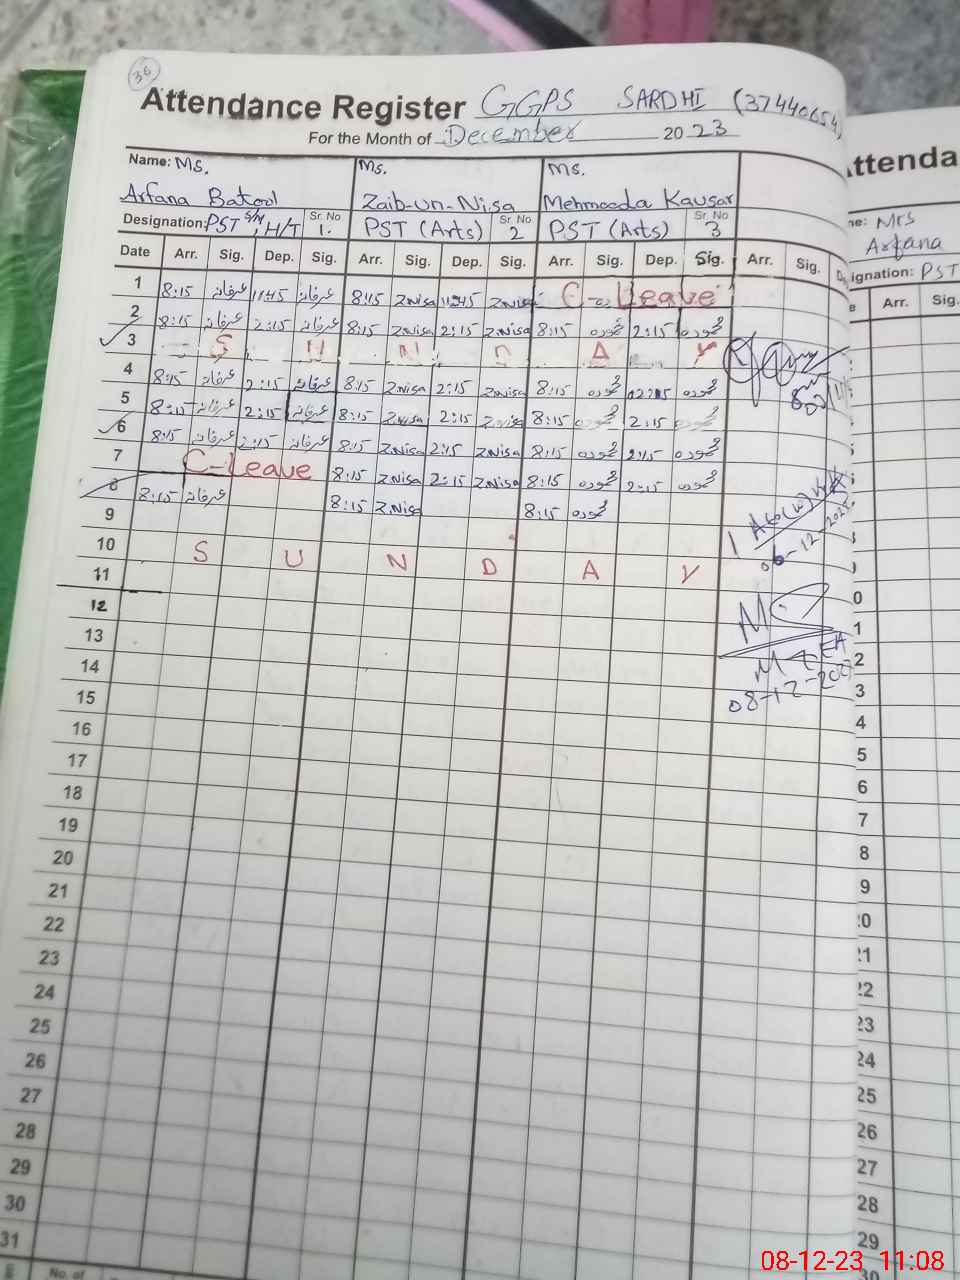 36
Attendance Register GGPS SARDHI (37440654)
For the Month of December 2023
Name: Ms. Ms. Ms.
Arfana Batool Zaib-un-Nisa Mehmooda Kausar
Designation: PST S/N, H/T Sr. No 1. PST (Arts) Sr. No 2 PST (Arts) Sr. No 3
Date Arr. Sig. Dep. Sig. Arr. Sig. Dep. Sig. Arr. Sig. Dep. Sig. Arr. Sig.
1 8:15 عرفانہ 11:45 عرفانہ 8:15 Z.nisa 11:45 Z.nisa C-Leave
2 8:15 عرفانہ 2:15 عرفانہ 8:15 Z.nisa 2:15 Z.nisa 8:15 محمودہ 2:15 محمودہ
3 S U N D A Y
4 8:15 عرفانہ 2:15 عرفانہ 8:15 Z.nisa 2:15 Z.nisa 8:15 محمودہ 02:15 محمودہ
5 8:15 عرفانہ 2:15 عرفانہ 8:15 Z.nisa 2:15 Z.nisa 8:15 محمودہ 2:15 محمودہ
6 8:15 عرفانہ 2:15 عرفانہ 8:15 Z.nisa 2:15 Z.nisa 8:15 محمودہ 2:15 محمودہ
7 C-Leave 8:15 Z.nisa 2:15 Z.nisa 8:15 محمودہ 2:15 محمودہ
8 8:15 عرفانہ 8:15 Z.nisa 8:15 محمودہ
9
10 S U N D A Y
11
12
13
14
15
16
17
18
19
20
21
22
23
24
25
26
27
28
29
30
31
No. of
06-12-2023
08-12-2023
Attenda
Mrs
Arfana
signation: PST
Arr. Sig.
0
1
2
3
4
5
6
7
8
9
20
21
22
23
24
25
26
27
28
29
30
08-12-23 11:08